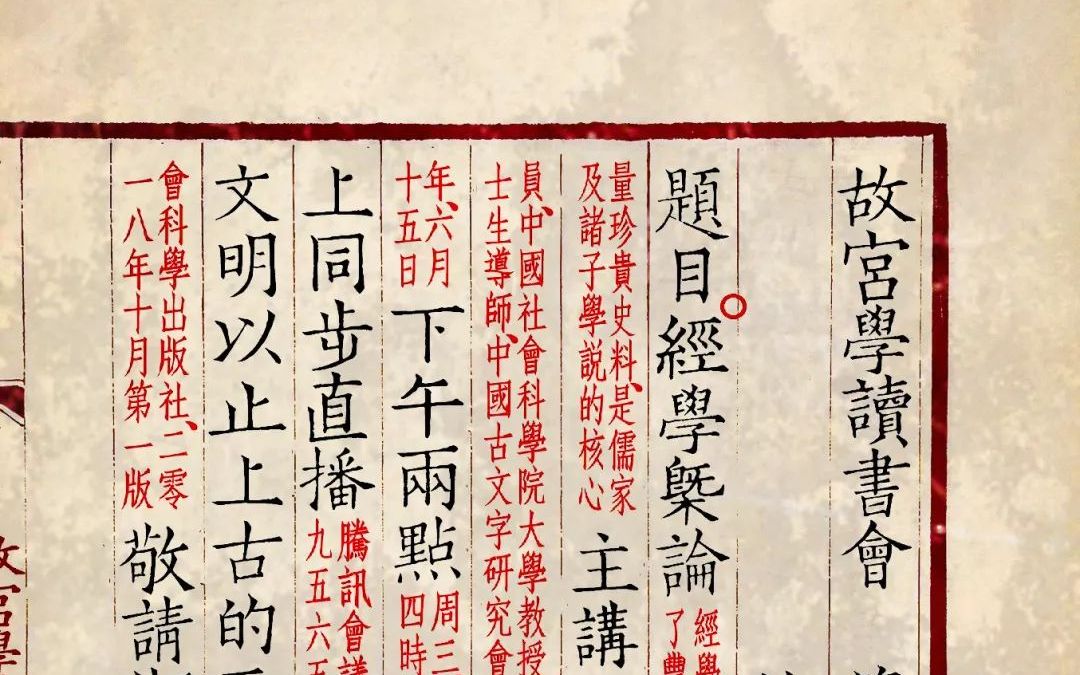 故宮學讀書會
題目經學槩論
經學
了
量珍貴史料、是儒家
及諸子學説的核心
主講
員、中國社會科學院大學教授
士生導師、中國古文字研究會
年、六月
十五日
下午兩點
周三
四時
上同步直播
騰訊會議
九五六五
文明以止上古的
會科學出版社、二零
一八年十月第一版
敬請
故宮學